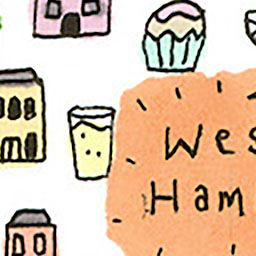 Wes
Ham